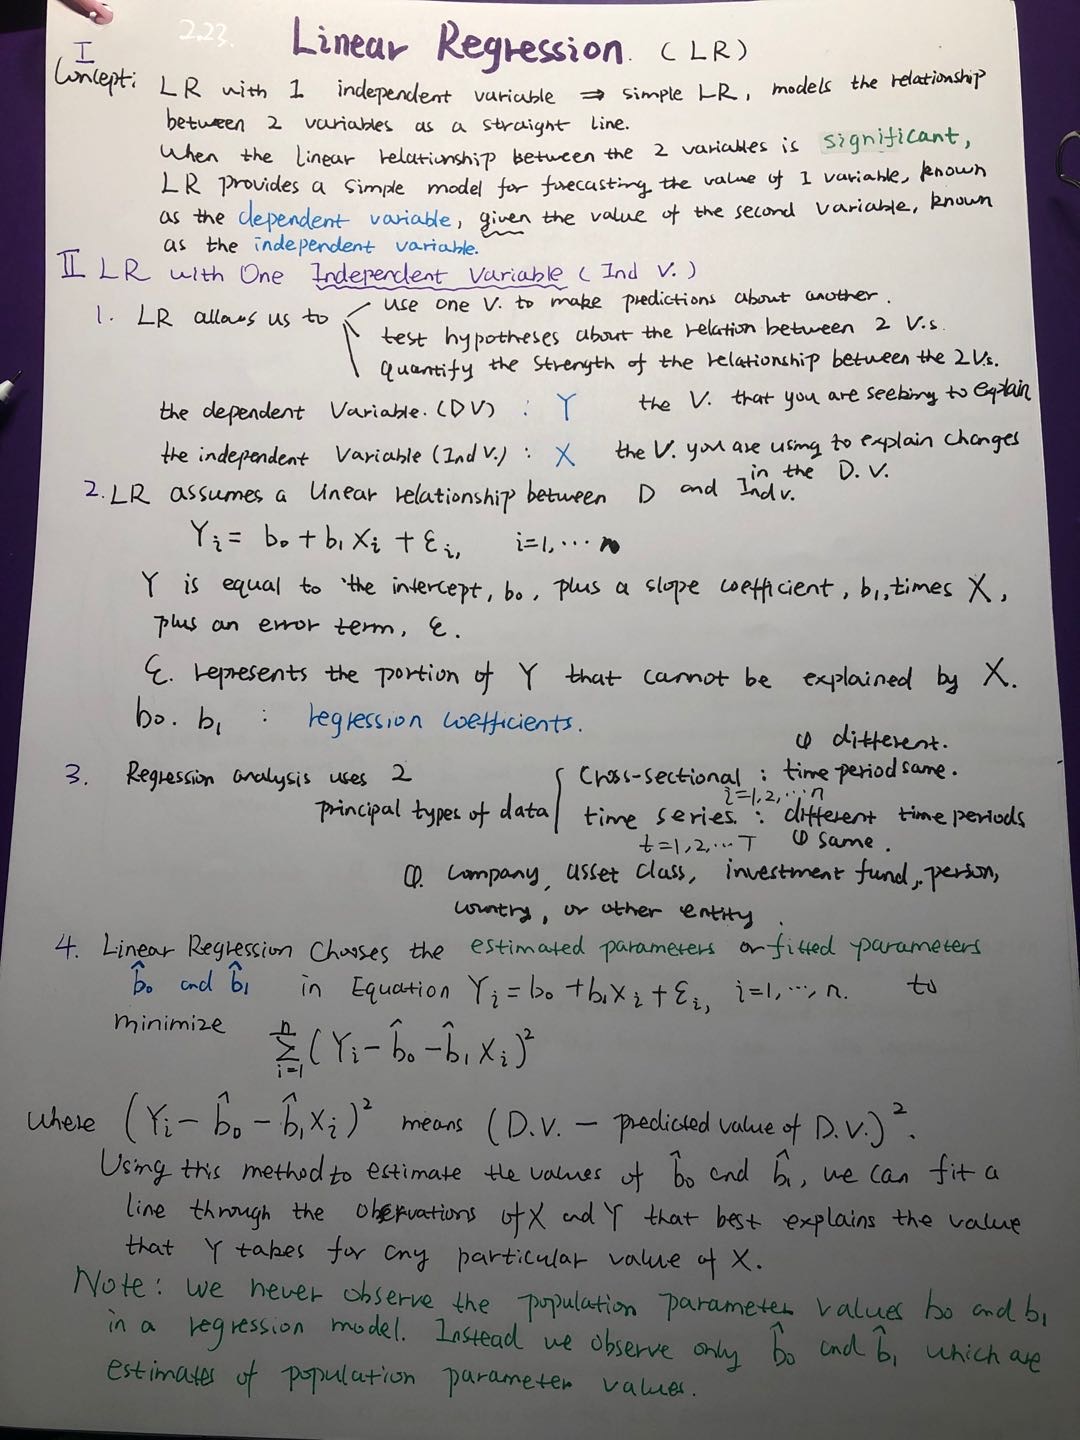 2.23. Linear Regression. (LR)
I
Concept: LR with 1 independent variable ⇒ simple LR, models the relationship
between 2 variables as a straight line.
When the linear relationship between the 2 variables is significant,
LR provides a simple model for forecasting the value of 1 variable, known
as the dependent variable, given the value of the second variable, known
as the independent variable.
II LR with One Independent Variable (Ind V.)
1. LR allows us to use one V. to make predictions about another.
test hypotheses about the relation between 2 V.s.
quantify the strength of the relationship between the 2 V.s.
the dependent Variable. (DV) : Y the V. that you are seeking to explain
the independent Variable (Ind V.) : X the V. you are using to explain changes
in the D.V.
2. LR assumes a linear relationship between D and Ind v.
Yi = b0 + b1 Xi + εi, i=1, ... n
Y is equal to the intercept, b0, plus a slope coefficient, b1, times X,
plus an error term, ε.
ε. represents the portion of Y that cannot be explained by X.
b0. b1 : regression coefficients.
① different.
3. Regression analysis uses 2 Cross-sectional : time period same.
i=1,2,...n
principal types of data time series. : different time periods
t=1,2,...T ① same.
①. company, asset class, investment fund, person,
country, or other entity.
4. Linear Regression Chooses the estimated parameters or fitted parameters
b̂0 and b̂1 in Equation Yi = b0 + b1Xi + εi, i=1, ..., n. to
minimize
n∑i=1 (Yi - b̂0 - b̂1 Xi)²
where (Yi - b̂0 - b̂1 Xi)² means (D.V. - predicted value of D.V.)².
Using this method to estimate the values of b̂0 and b̂1, we can fit a
line through the observations of X and Y that best explains the value
that Y takes for any particular value of X.
Note: we never observe the population parameter values b0 and b1
in a regression model. Instead we observe only b̂0 and b̂1 which are
estimates of population parameter values.